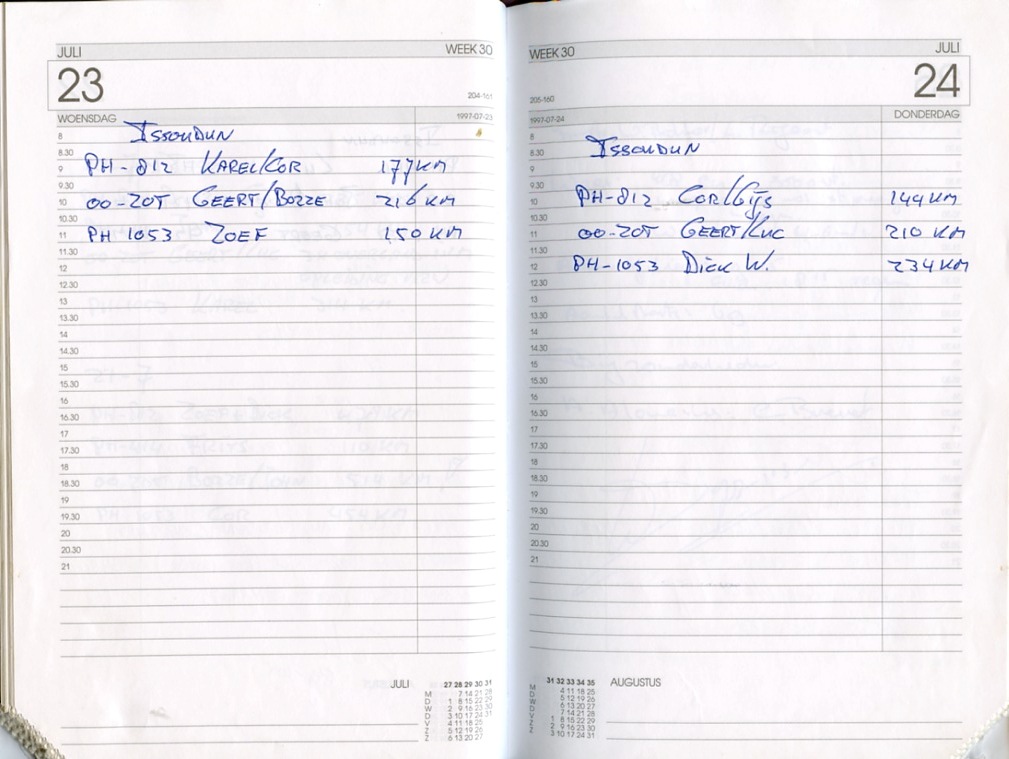 JULI WEEK 30
23
204-161
WOENSDAG 1997-07-23
8 ISSOUDUN
8.30
9 PH-812 KAREL/COR 177 KM
9.30
10 OO-ZOT GEERT/BOZZE 216 KM
10.30
11 PH 1053 ZOEF 150 KM
11.30
12
12.30
13
13.30
14
14.30
15
15.30
16
16.30
17
17.30
18
18.30
19
19.30
20
20.30
21
JULI 27 28 29 30 31
M 7 14 21 28
D 1 8 15 22 29
W 2 9 16 23 30
D 3 10 17 24 31
V 4 11 18 25
Z 5 12 19 26
Z 6 13 20 27
WEEK 30 JULI
24
205-160
1997-07-24 DONDERDAG
8
8.30 ISSOUDUN
9
9.30
10 PH-812 COR/Gijs 144 KM
10.30
11 OO-ZOT GEERT/LUC 210 KM
11.30
12 PH-1053 DICK W. 234 KM
12.30
13
13.30
14
14.30
15
15.30
16
16.30
17
17.30
18
18.30
19
19.30
20
20.30
21
31 32 33 34 35 AUGUSTUS
M 4 11 18 25
D 5 12 19 26
W 6 13 20 27
D 7 14 21 28
V 1 8 15 22 29
Z 2 9 16 23 30
Z 3 10 17 24 31